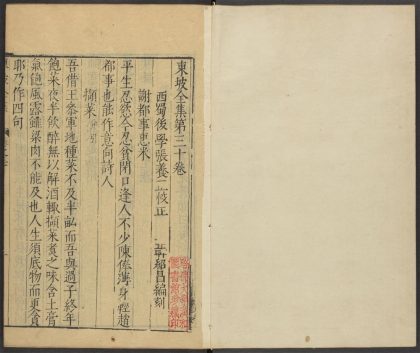 東坡全集第三十卷
西蜀後學張養正校正
謝都事惠米
平生忍慾今忍貧閉口逢人不少陳俸薄身輕趙
都事也能作意向詩人
擷菜
吾借王參軍地種菜不及半畝而吾與過子終年
飽菜夜半飲醉無以解酒輒擷菜煮之味含土膏
氣飽風露雖粱肉不能及也人生須底物而更貪
耶乃作四句